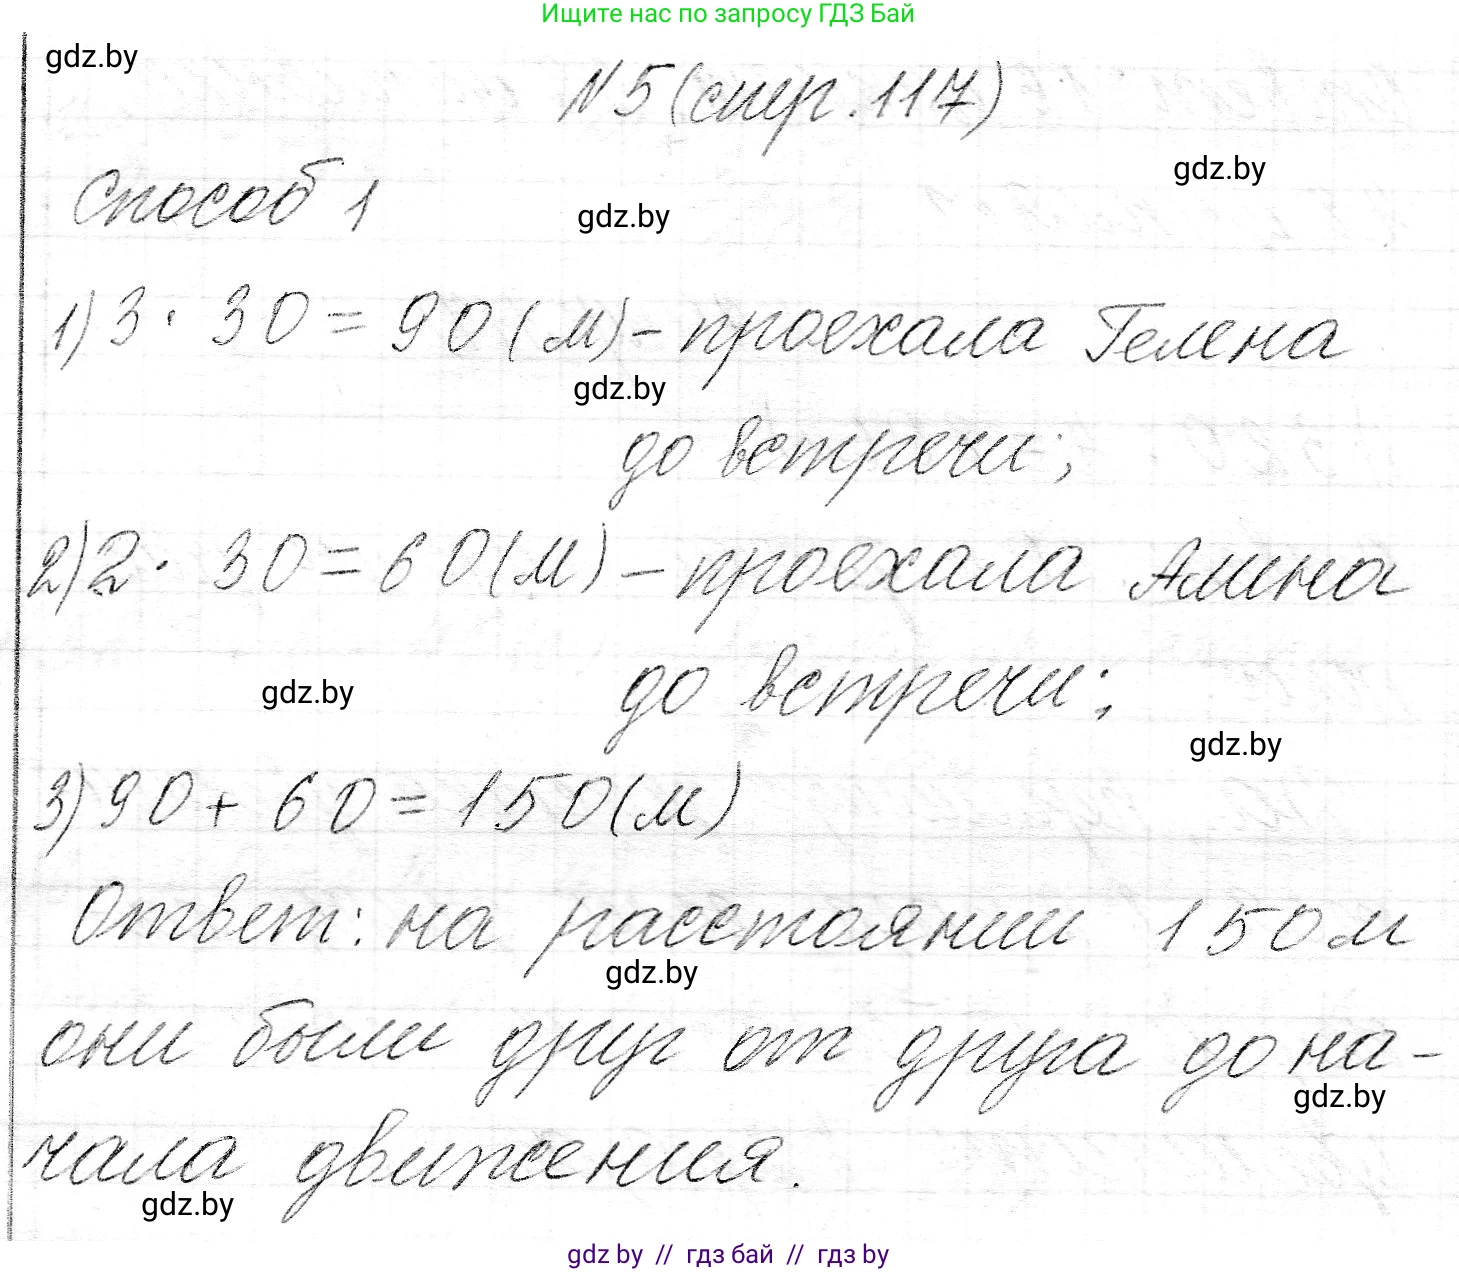 Ищите нас по запросу ГДЗ Бай
gdz.by
№5 (стр. 117)
gdz.by
Способ 1
gdz.by
1) 3 · 30 = 90 (м) – проехала Гелена
gdz.by
до встречи;
2) 2 · 30 = 60 (м) – проехала Амина
до встречи;
gdz.by
gdz.by
3) 90 + 60 = 150 (м)
Ответ: на расстоянии 150 м
gdz.by
они были друг от друга до на-
gdz.by
чала движения.
gdz.by
gdz by // гдз бай // гдз by